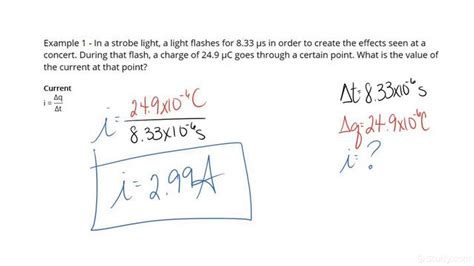 Example 1 - In a strobe light, a light flashes for 8.33 µs in order to create the effects seen at a
concert. During that flash, a charge of 24.9 µC goes through a certain point. What is the value of
the current at that point?
Current
i = Δq
Δt
i = 24.9x10⁻⁶C
8.33x10⁻⁶s
i = 2.99A
Δt = 8.33x10⁻⁶s
Δq = 24.9x10⁻⁶C
i = ?
© Study.com